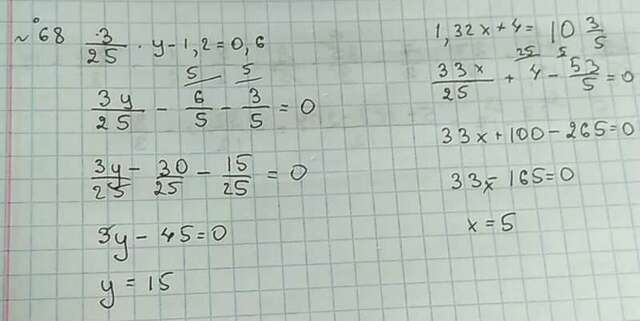 №68 3/25 · y - 1,2 = 0,6
5 5
3y/25 - 6/5 - 3/5 = 0
3y/25 - 30/25 - 15/25 = 0
3y - 45 = 0
y = 15
1,32x + 4 = 10 3/5
25 5
33x/25 + 4 - 53/5 = 0
33x + 100 - 265 = 0
33x - 165 = 0
x = 5